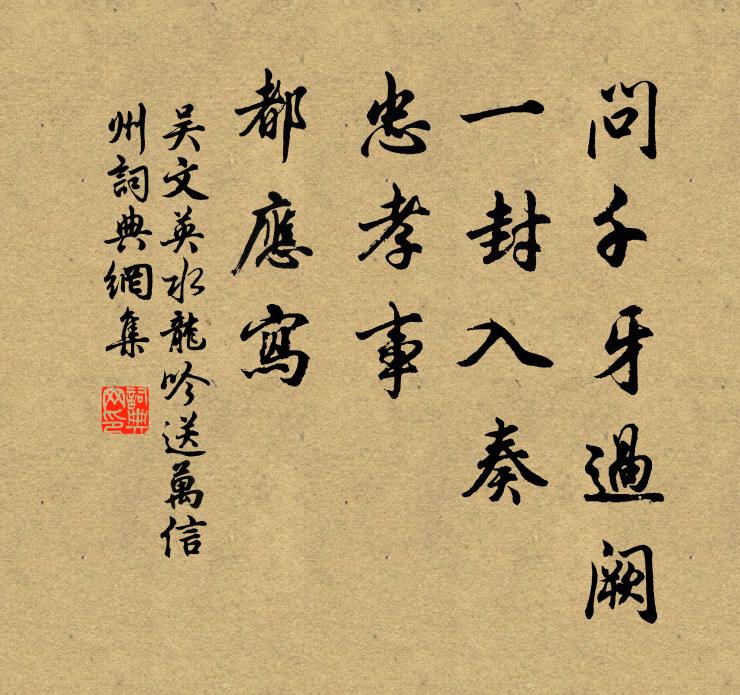 問千牙過阙
一封入奏
忠孝事
都應寫
吴文英水龍吟送萬信
州詞典網集
詞典
网印